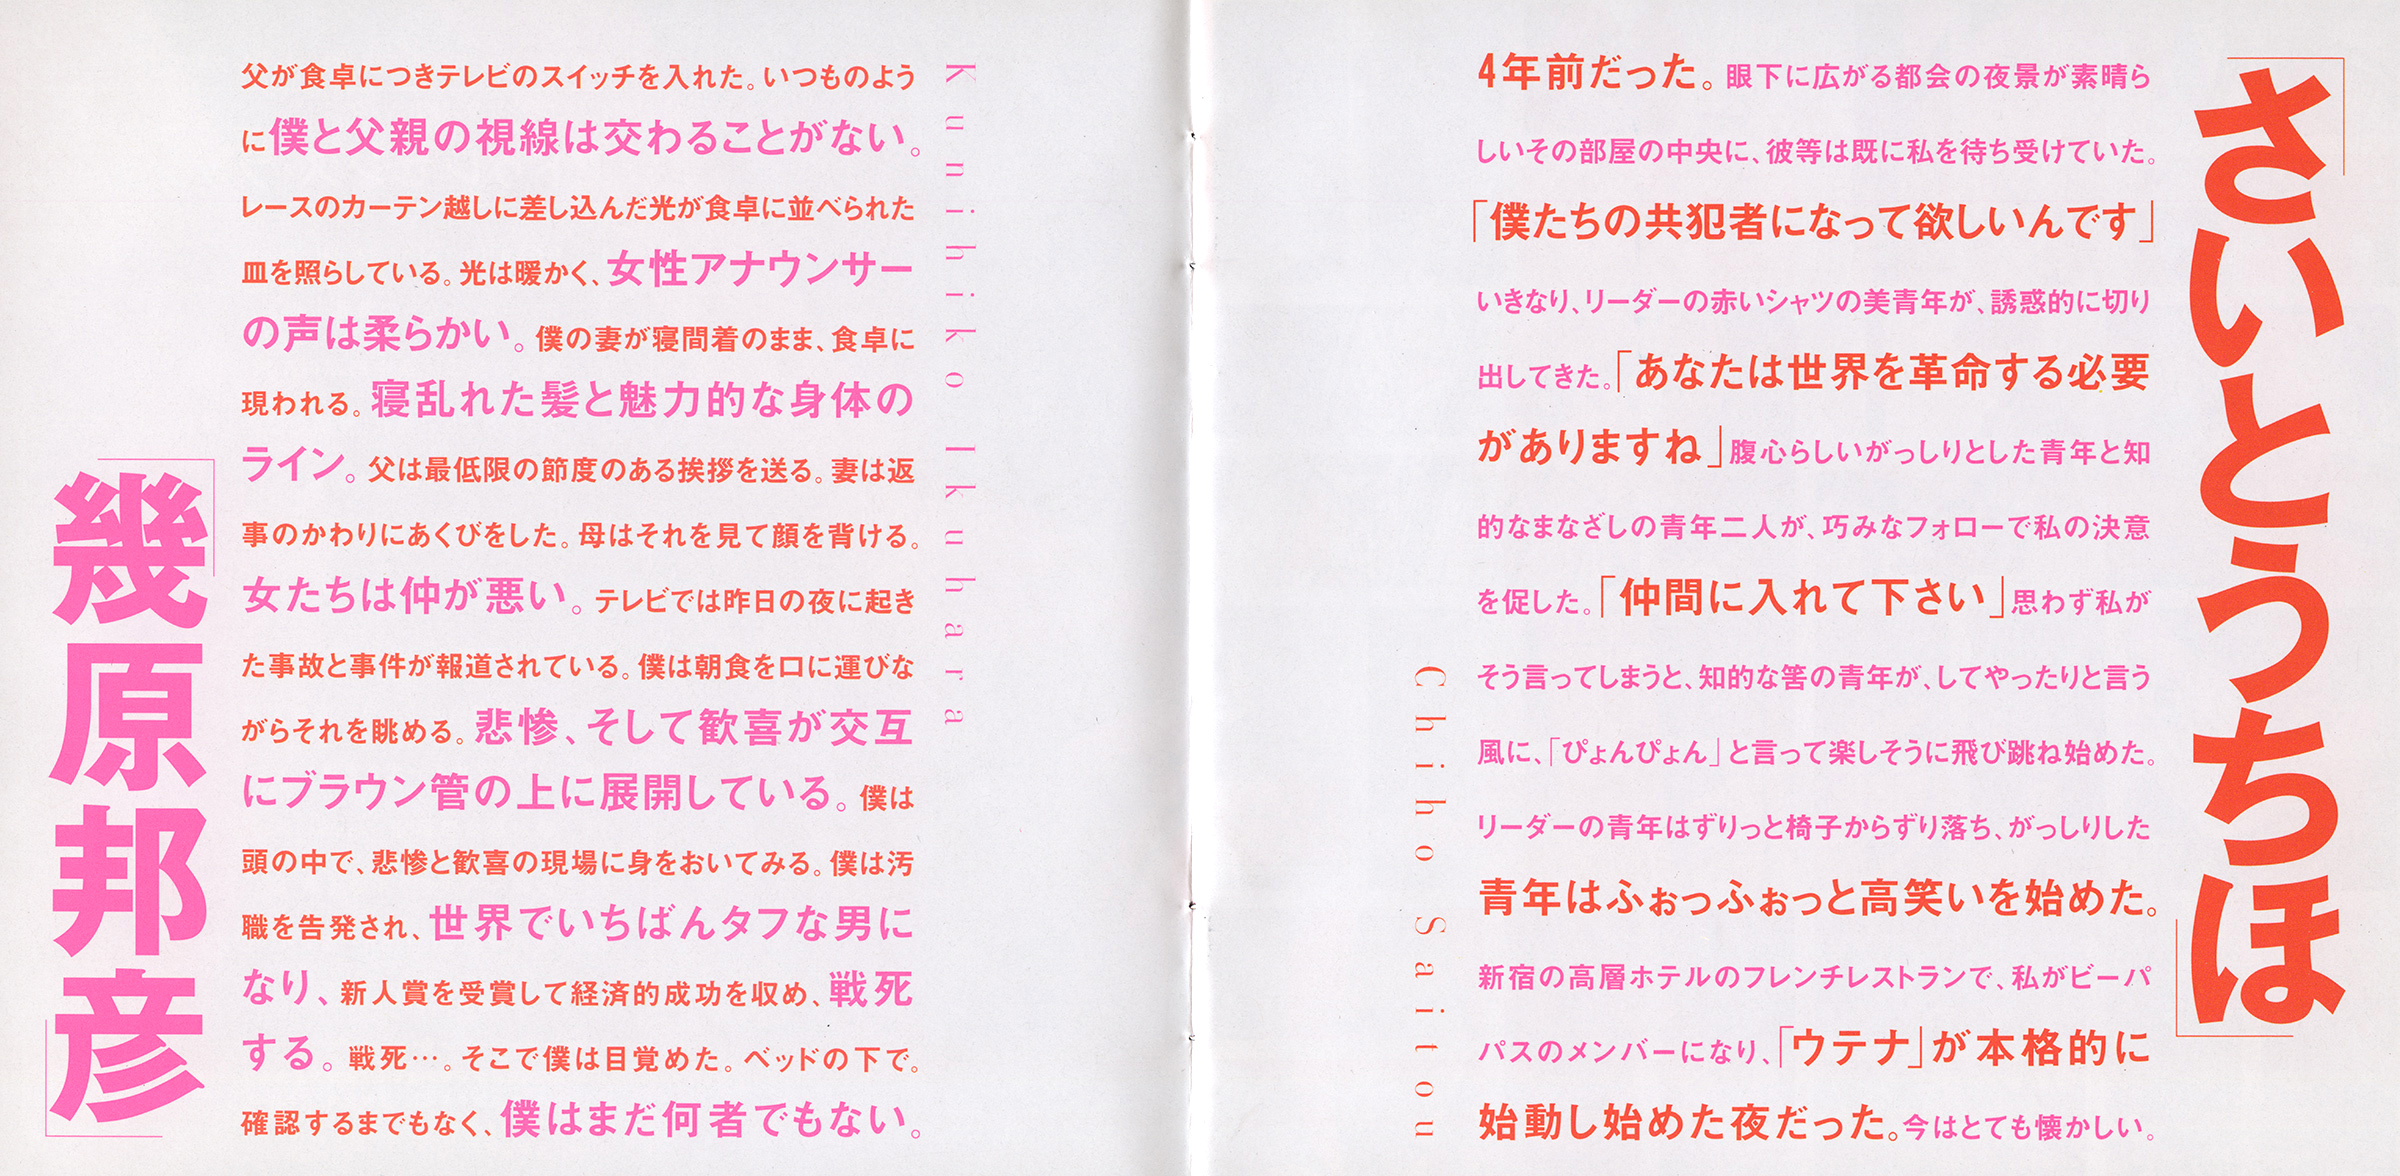 「さいとうちほ」
Chiho Saitou
4年前だった。眼下に広がる都会の夜景が素晴ら
しいその部屋の中央に、彼等は既に私を待ち受けていた。
「僕たちの共犯者になって欲しいんです」
いきなり、リーダーの赤いシャツの美青年が、誘惑的に切り
出してきた。「あなたは世界を革命する必要
がありますね」腹心らしいがっしりとした青年と知
的なまなざしの青年二人が、巧みなフォローで私の決意
を促した。「仲間に入れて下さい」思わず私が
そう言ってしまうと、知的な筈の青年が、してやったりと言う
風に、「ぴょんぴょん」と言って楽しそうに飛び跳ね始めた。
リーダーの青年はずりっと椅子からずり落ち、がっしりした
青年はふぉっふぉっと高笑いを始めた。
新宿の高層ホテルのフレンチレストランで、私がビーパ
パスのメンバーになり、「ウテナ」が本格的に
始動し始めた夜だった。今はとても懐かしい。
Kunihiko Ikuhara
父が食卓につきテレビのスイッチを入れた。いつものよう
に僕と父親の視線は交わることがない。
レースのカーテン越しに差し込んだ光が食卓に並べられた
皿を照らしている。光は暖かく、女性アナウンサー
の声は柔らかい。僕の妻が寝間着のまま、食卓に
現われる。寝乱れた髪と魅力的な身体の
ライン。父は最低限の節度のある挨拶を送る。妻は返
事のかわりにあくびをした。母はそれを見て顔を背ける。
女たちは仲が悪い。テレビでは昨日の夜に起き
た事故と事件が報道されている。僕は朝食を口に運びな
がらそれを眺める。悲惨、そして歓喜が交互
にブラウン管の上に展開している。僕は
頭の中で、悲惨と歓喜の現場に身をおいてみる。僕は汚
職を告発され、世界でいちばんタフな男に
なり、新人賞を受賞して経済的成功を収め、戦死
する。戦死…。そこで僕は目覚めた。ベッドの下で。
確認するまでもなく、僕はまだ何者でもない。
「幾原邦彦」